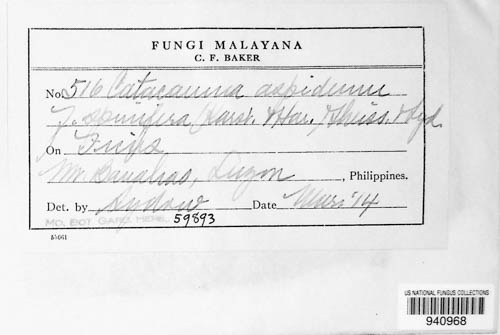 FUNGI MALAYANA
C. F. BAKER
No. 516 Catacauma aspideum
f. spinifera (Karst. & Har.) Theiss. & Syd.
On Ficus
Mt. Banahao, Luzon, Philippines.
Det. by Sydow Date '14
MO. BOT. GARD. HERB. 59893
51661
US NATIONAL FUNGUS COLLECTIONS
940968